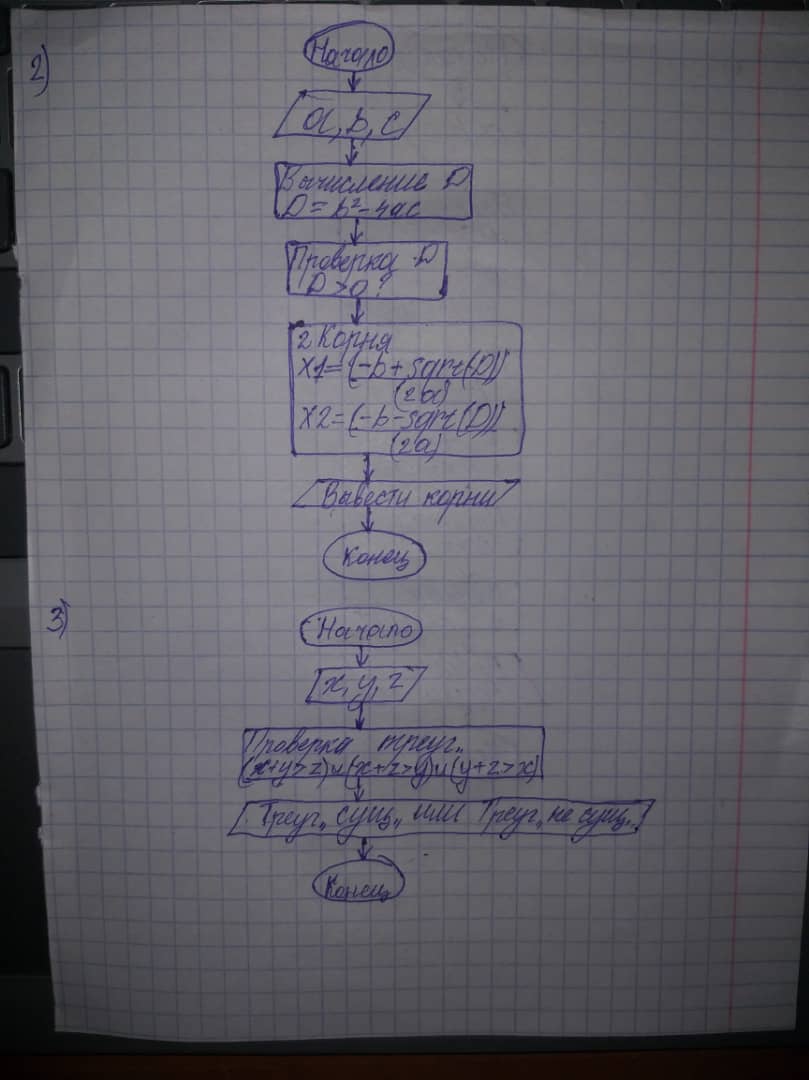 2)
Начало
a, b, c
Вычисление D
D = b² - 4ac
Проверка D
D > 0?
2 Корня
X1 = (-b + sqrt(D))
(2a)
X2 = (-b - sqrt(D))
(2a)
Вывести корни
Конец
3)
Начало
x, y, z
Проверка треуг.,
(x+y>z) и (x+z>y) и (y+z>x)
Треуг., сущ., или Треуг., не сущ.,
Конец